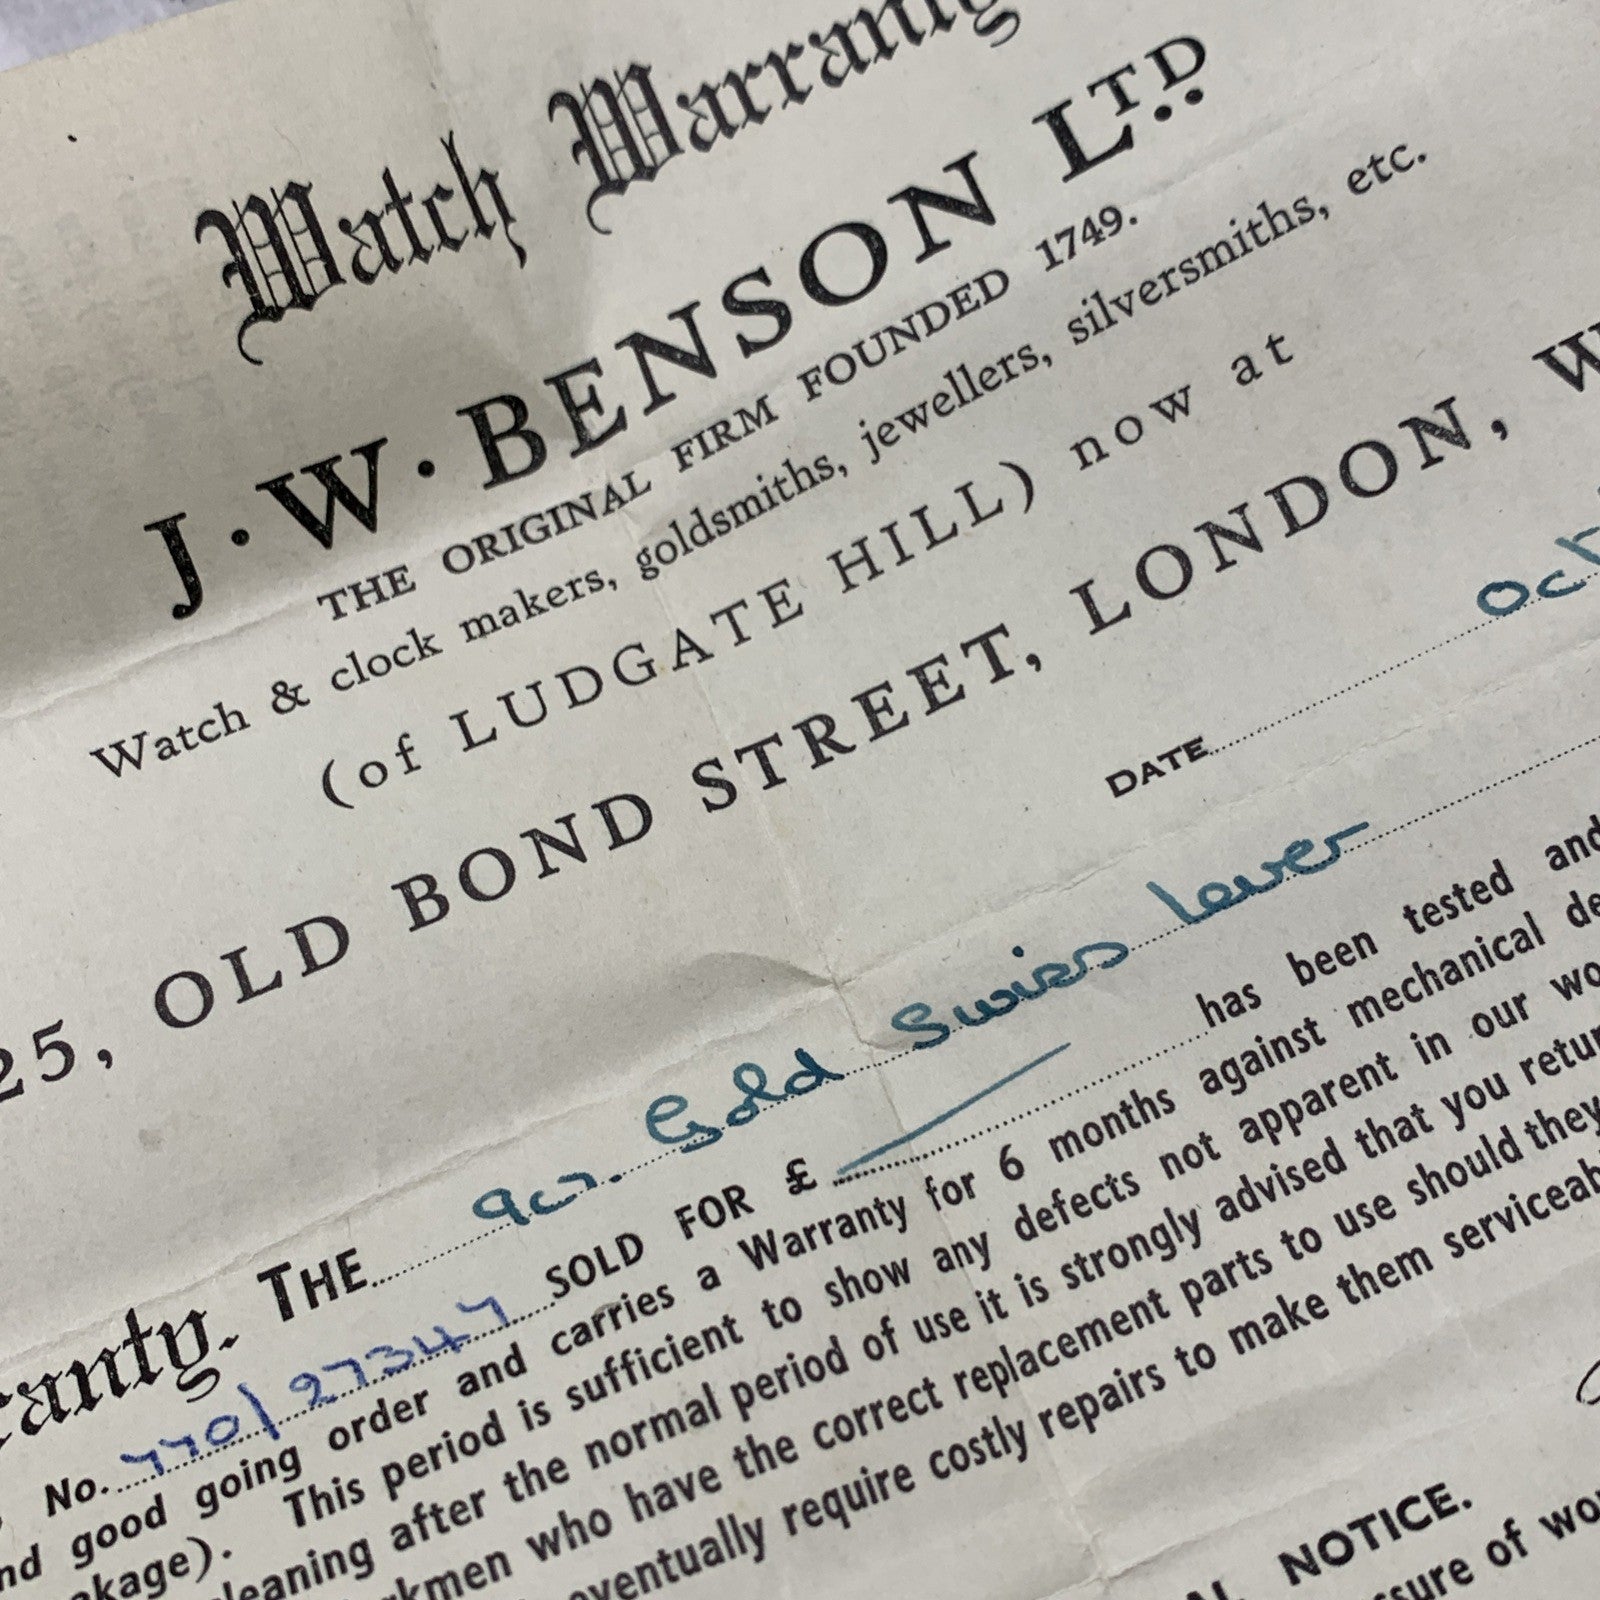 Watch Warranty
J · W · BENSON LTD
THE ORIGINAL FIRM FOUNDED 1749.
Watch & clock makers, goldsmiths, jewellers, silversmiths, etc.
(of LUDGATE HILL) now at
25, OLD BOND STREET, LONDON, W
DATE Oct
THE 9ct. Gold Swiss lever
No. 770/27347 SOLD FOR £ has been tested and
good going order and carries a Warranty for 6 months against mechanical
This period is sufficient to show any defects not apparent in our
cleaning after the normal period of use it is strongly advised that you
who have the correct replacement parts to use should they
eventually require costly repairs to make them
NOTICE.
of